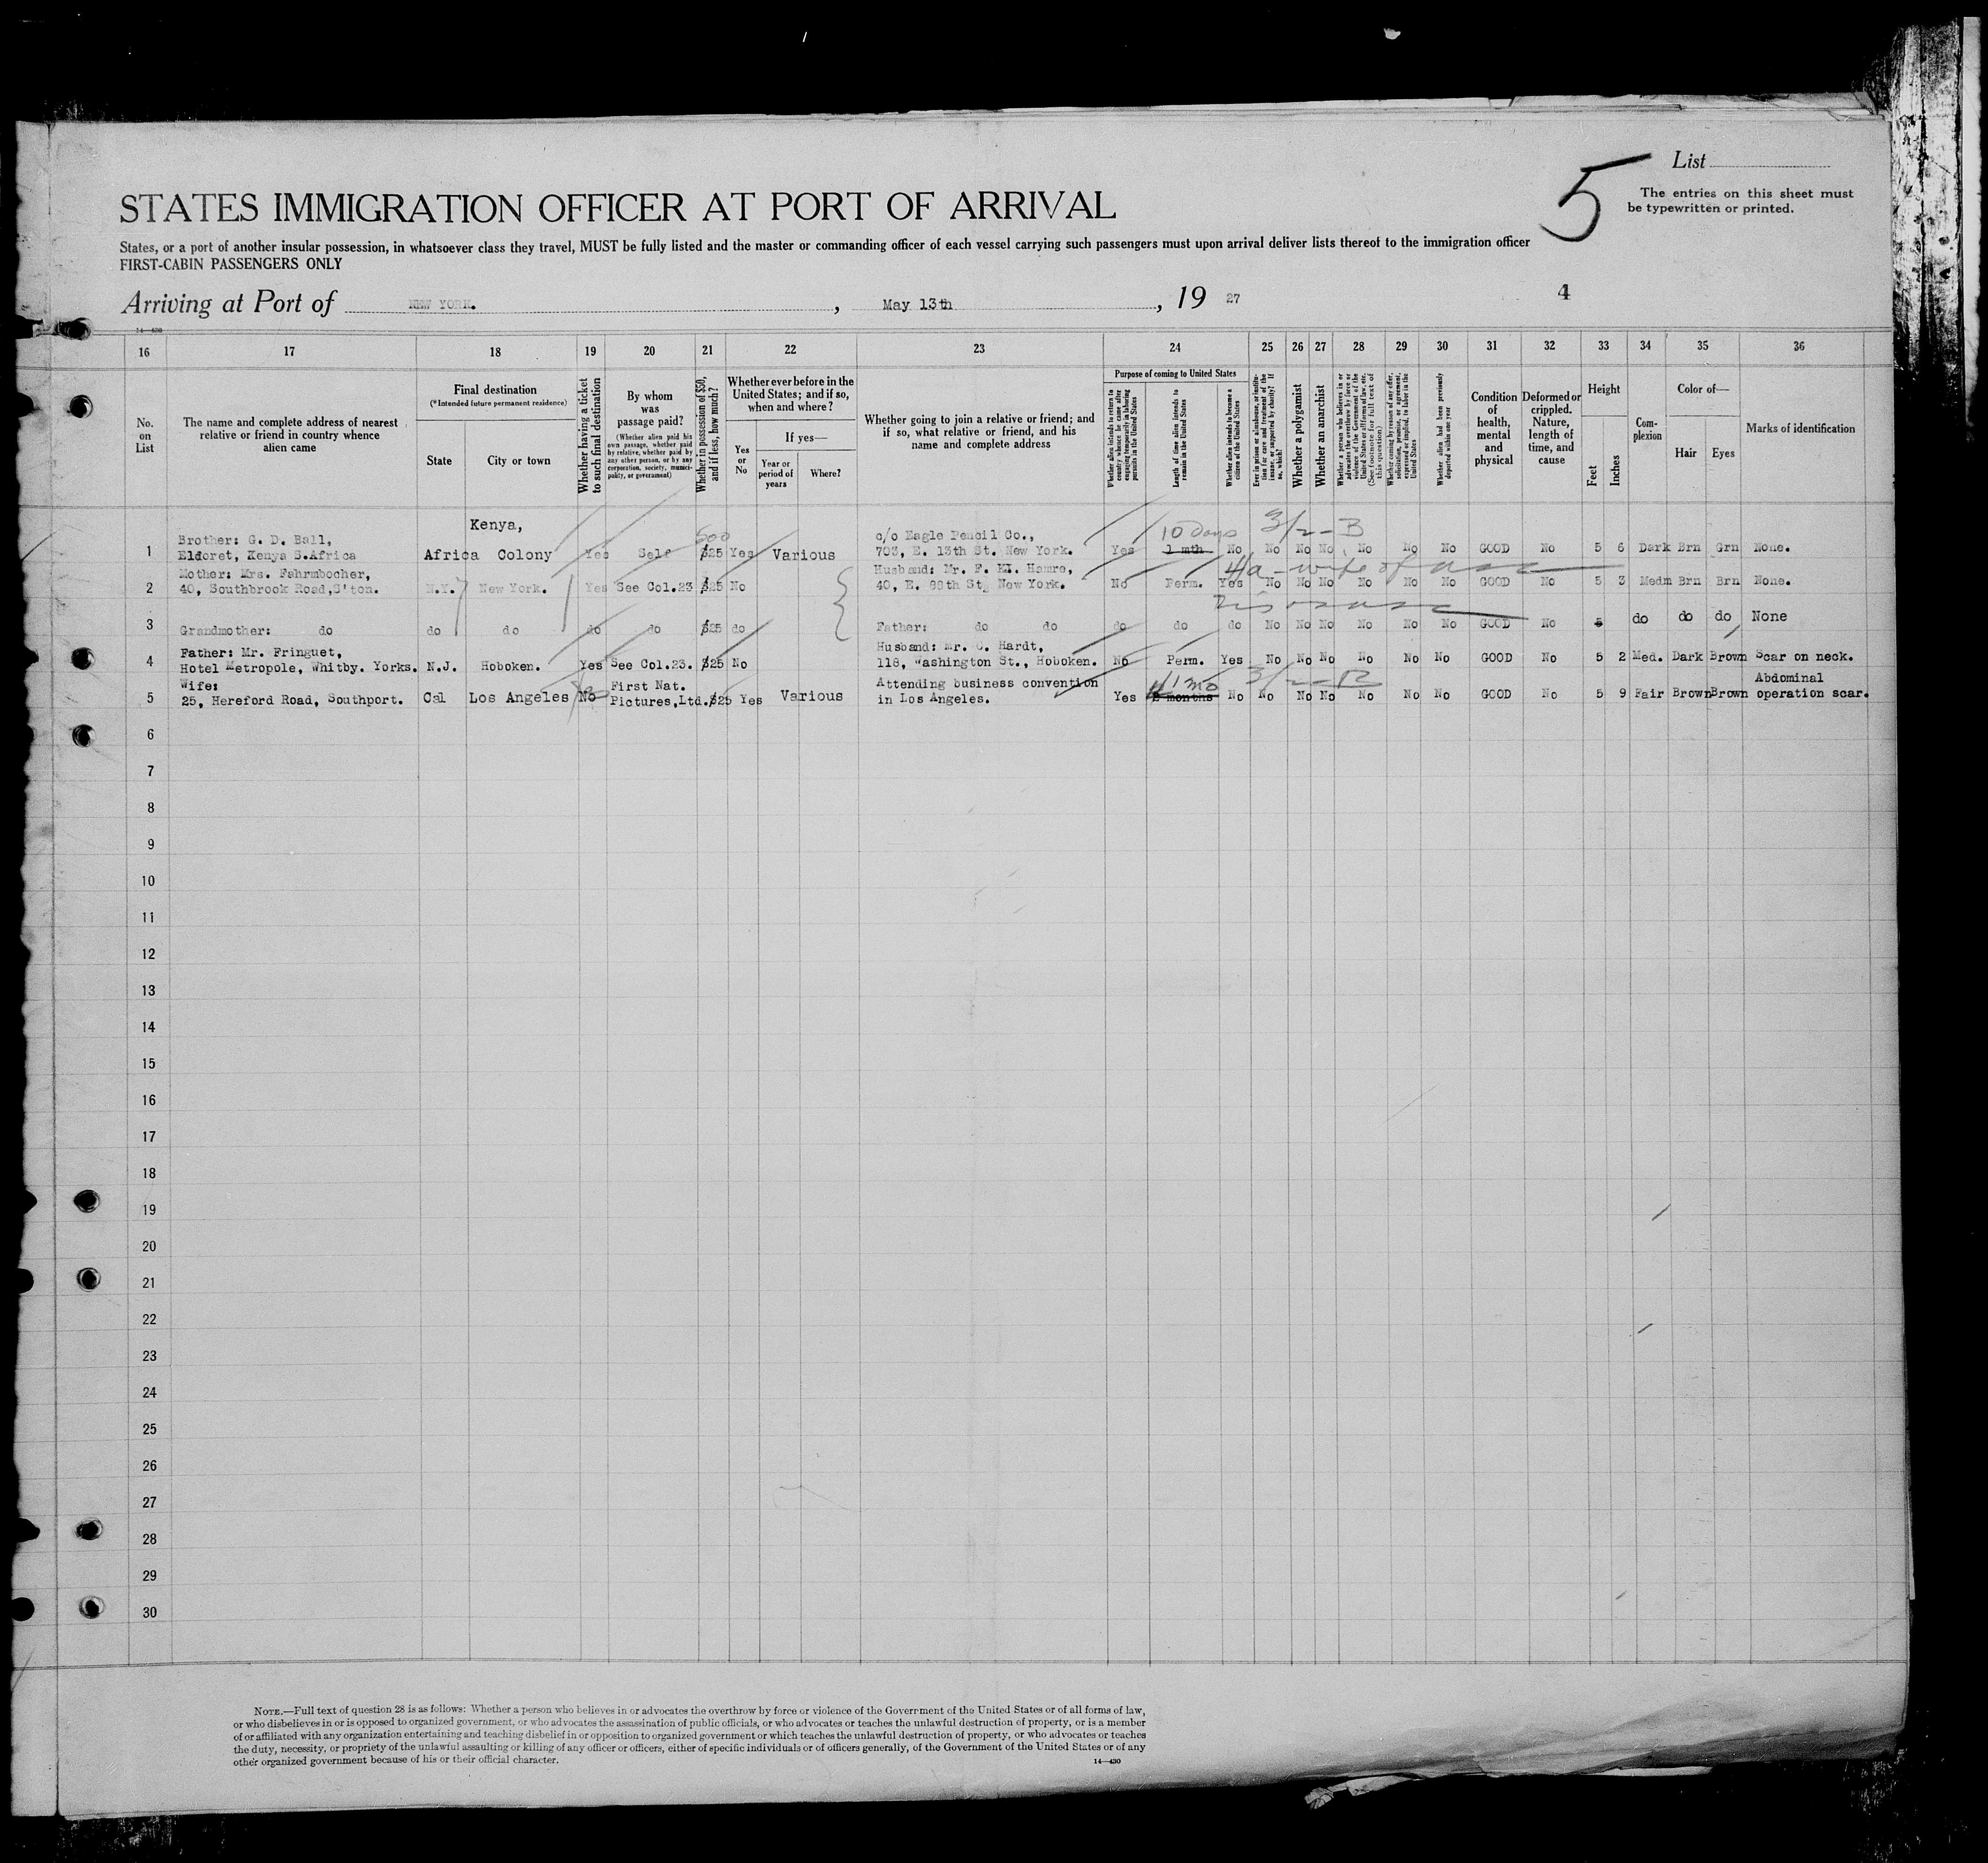 5
List
The entries on this sheet must
be typewritten or printed.
STATES IMMIGRATION OFFICER AT PORT OF ARRIVAL
States, or a port of another insular possession, in whatsoever class they travel, MUST be fully listed and the master or commanding officer of each vessel carrying such passengers must upon arrival deliver lists thereof to the immigration officer
FIRST-CABIN PASSENGERS ONLY
Arriving at Port of NEW YORK. , May 13th , 19 27
4
14—430
16 17 18 19 20 21 22 23 24 25 26 27 28 29 30 31 32 33 34 35 36
No. on List
The name and complete address of nearest relative or friend in country whence alien came
Final destination
(*Intended future permanent residence)
State
City or town
Whether having a ticket to such final destination
By whom was passage paid?
(Whether alien paid his own passage, whether paid by relative, whether paid by any other person, or by any corporation, society, municipality, or government)
Whether in possession of $50, and if less, how much?
Whether ever before in the United States; and if so, when and where?
Yes or No
If yes—
Year or period of years
Where?
Whether going to join a relative or friend; and if so, what relative or friend, and his name and complete address
Purpose of coming to United States
Whether alien intends to return to country whence he came after engaging temporarily in laboring pursuits in the United States
Length of time alien intends to remain in the United States
Whether alien intends to become a citizen of the United States
Ever in prison or almshouse, or institution for care and treatment of the insane, or supported by charity? If so, which?
Whether a polygamist
Whether an anarchist
Whether a person who believes in or advocates the overthrow by force or violence of the Government of the United States or all forms of law, etc. (See footnote for full text of this question)
Whether coming by reason of any offer, solicitation, promise, or agreement, expressed or implied, to labor in the United States
Whether alien had been previously deported within one year
Condition of health, mental and physical
Deformed or crippled. Nature, length of time, and cause
Height
Feet
Inches
Complexion
Color of—
Hair
Eyes
Marks of identification
Kenya,
500
10 days 3/2-B
Brother: G. D. Ball, c/o Eagle Pencil Co.,
1 Eldoret, Kenya S.Africa Africa Colony Yes Self $25 Yes Various 703, E. 13th St. New York. Yes 1 mth No No No No No No No GOOD No 5 6 Dark Brn Grn None.
Mother: Mrs. Fahrmbocher, Husband: Mr. F. KI. Hamre, 4/a - wife of
2 40, Southbrook Road,S'ton. N.Y. New York. Yes See Col.23 $25 No 40, E. 89th St, New York. No Perm. Yes No No No No No No GOOD No 5 3 Medm Brn Brn None.
3 Grandmother: do do do do do $25 do Father: do do do do do No No No No No No GOOD No 5 do do do None
Father: Mr. Fringuet, Husband: Mr. C. Hardt,
4 Hotel Metropole, Whitby. Yorks. N.J. Hoboken. Yes See Col.23. $25 No 118, Washington St., Hoboken. No Perm. Yes No No No No No No GOOD No 5 2 Med. Dark Brown Scar on neck.
Wife: First Nat. Attending business convention 1 mo 3/2-B Abdominal
5 25, Hereford Road, Southport. Cal Los Angeles No Pictures,Ltd. $25 Yes Various in Los Angeles. Yes 2 months No No No No No No No GOOD No 5 9 Fair Brown Brown operation scar.
6
7
8
9
10
11
12
13
14
15
16
17
18
19
20
21
22
23
24
25
26
27
28
29
30
NOTE.—Full text of question 28 is as follows: Whether a person who believes in or advocates the overthrow by force or violence of the Government of the United States or of all forms of law,
or who disbelieves in or is opposed to organized government, or who advocates the assassination of public officials, or who advocates or teaches the unlawful destruction of property, or is a member
of or affiliated with any organization entertaining and teaching disbelief in or opposition to organized government or which teaches the unlawful destruction of property, or who advocates or teaches
the duty, necessity, or propriety of the unlawful assaulting or killing of any officer or officers, either of specific individuals or of officers generally, of the Government of the United States or of any
other organized government because of his or their official character.
14—430